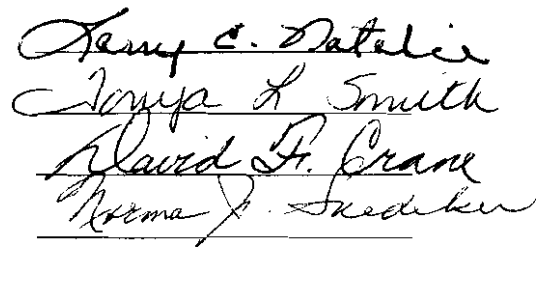 Larry C. Natalie
Tonya L Smith
David F. Crane
Norma J. Snediker